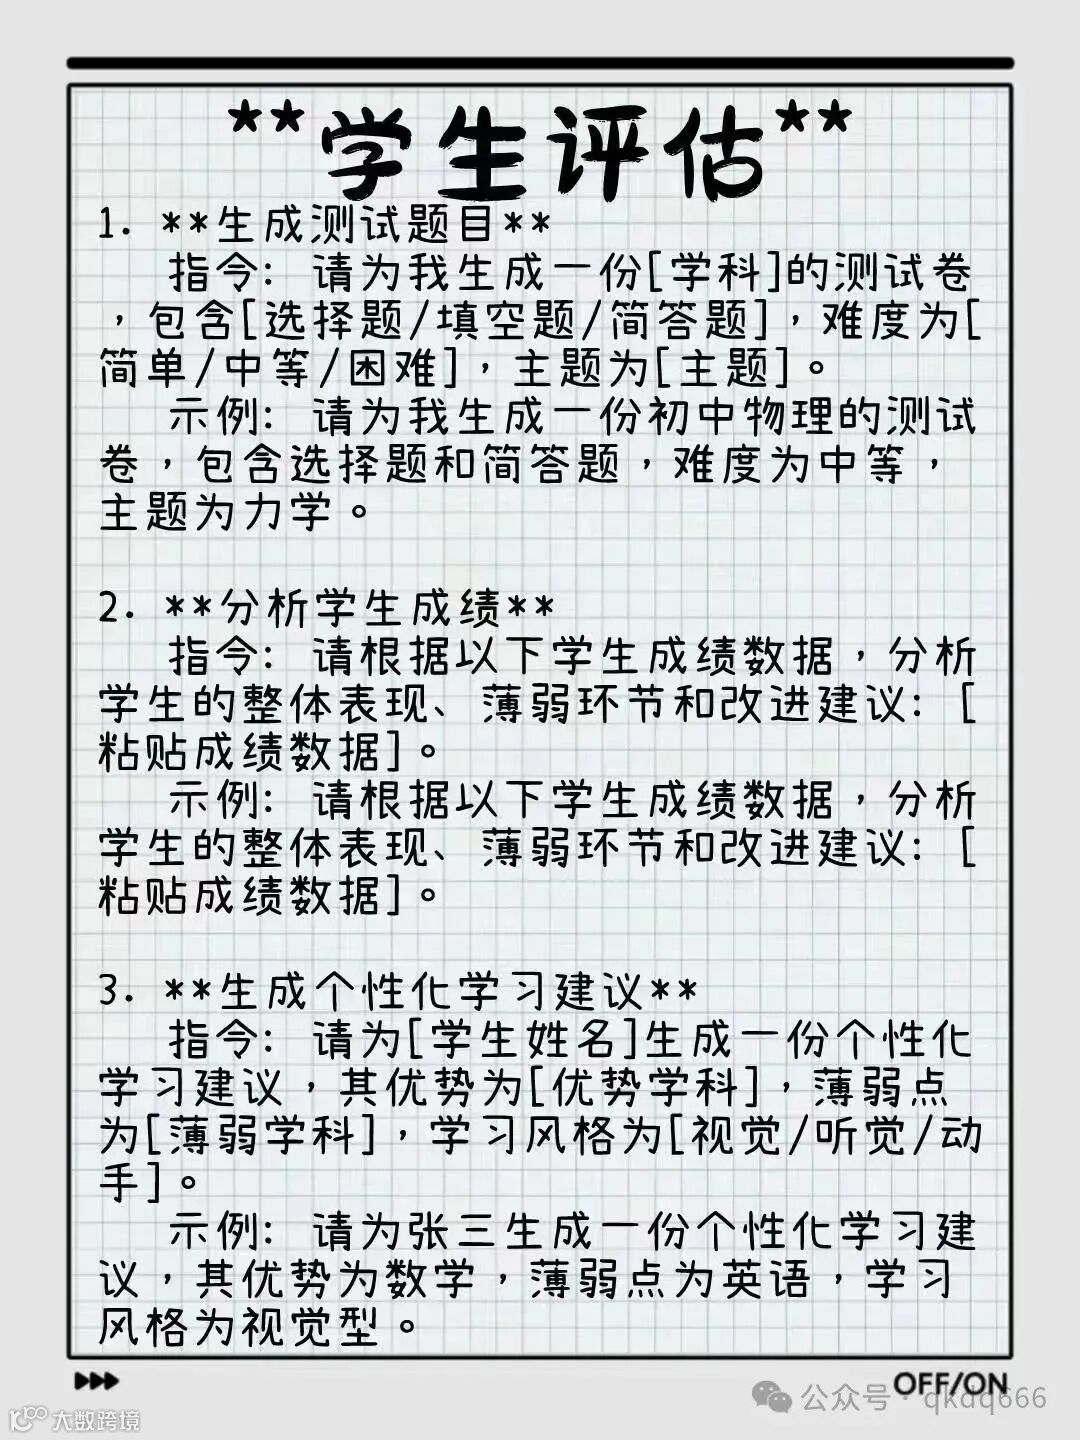 **学生评估**
1. **生成测试题目**
指令: 请为我生成一份[学科]的测试卷
，包含[选择题/填空题/简答题]，难度为[
简单/中等/困难]，主题为[主题]。
示例: 请为我生成一份初中物理的测试
卷，包含选择题和简答题，难度为中等，
主题为力学。
2. **分析学生成绩**
指令: 请根据以下学生成绩数据，分析
学生的整体表现、薄弱环节和改进建议: [
粘贴成绩数据]。
示例: 请根据以下学生成绩数据，分析
学生的整体表现、薄弱环节和改进建议: [
粘贴成绩数据]。
3. **生成个性化学习建议**
指令: 请为[学生姓名]生成一份个性化
学习建议，其优势为[优势学科]，薄弱点
为[薄弱学科]，学习风格为[视觉/听觉/动
手]。
示例: 请为张三生成一份个性化学习建
议，其优势为数学，薄弱点为英语，学习
风格为视觉型。
OFF/ON
公众号 · qkdq666
大数跨境